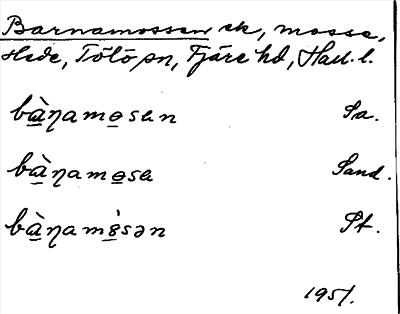 Barnamossen sk, mosse,
Hede, Tölö sn, Fjäre hd, Hall. l.
bàɳamosɐn Sa.
bàɳamosɐ Sand.
bàɳamòsən St.
1951.